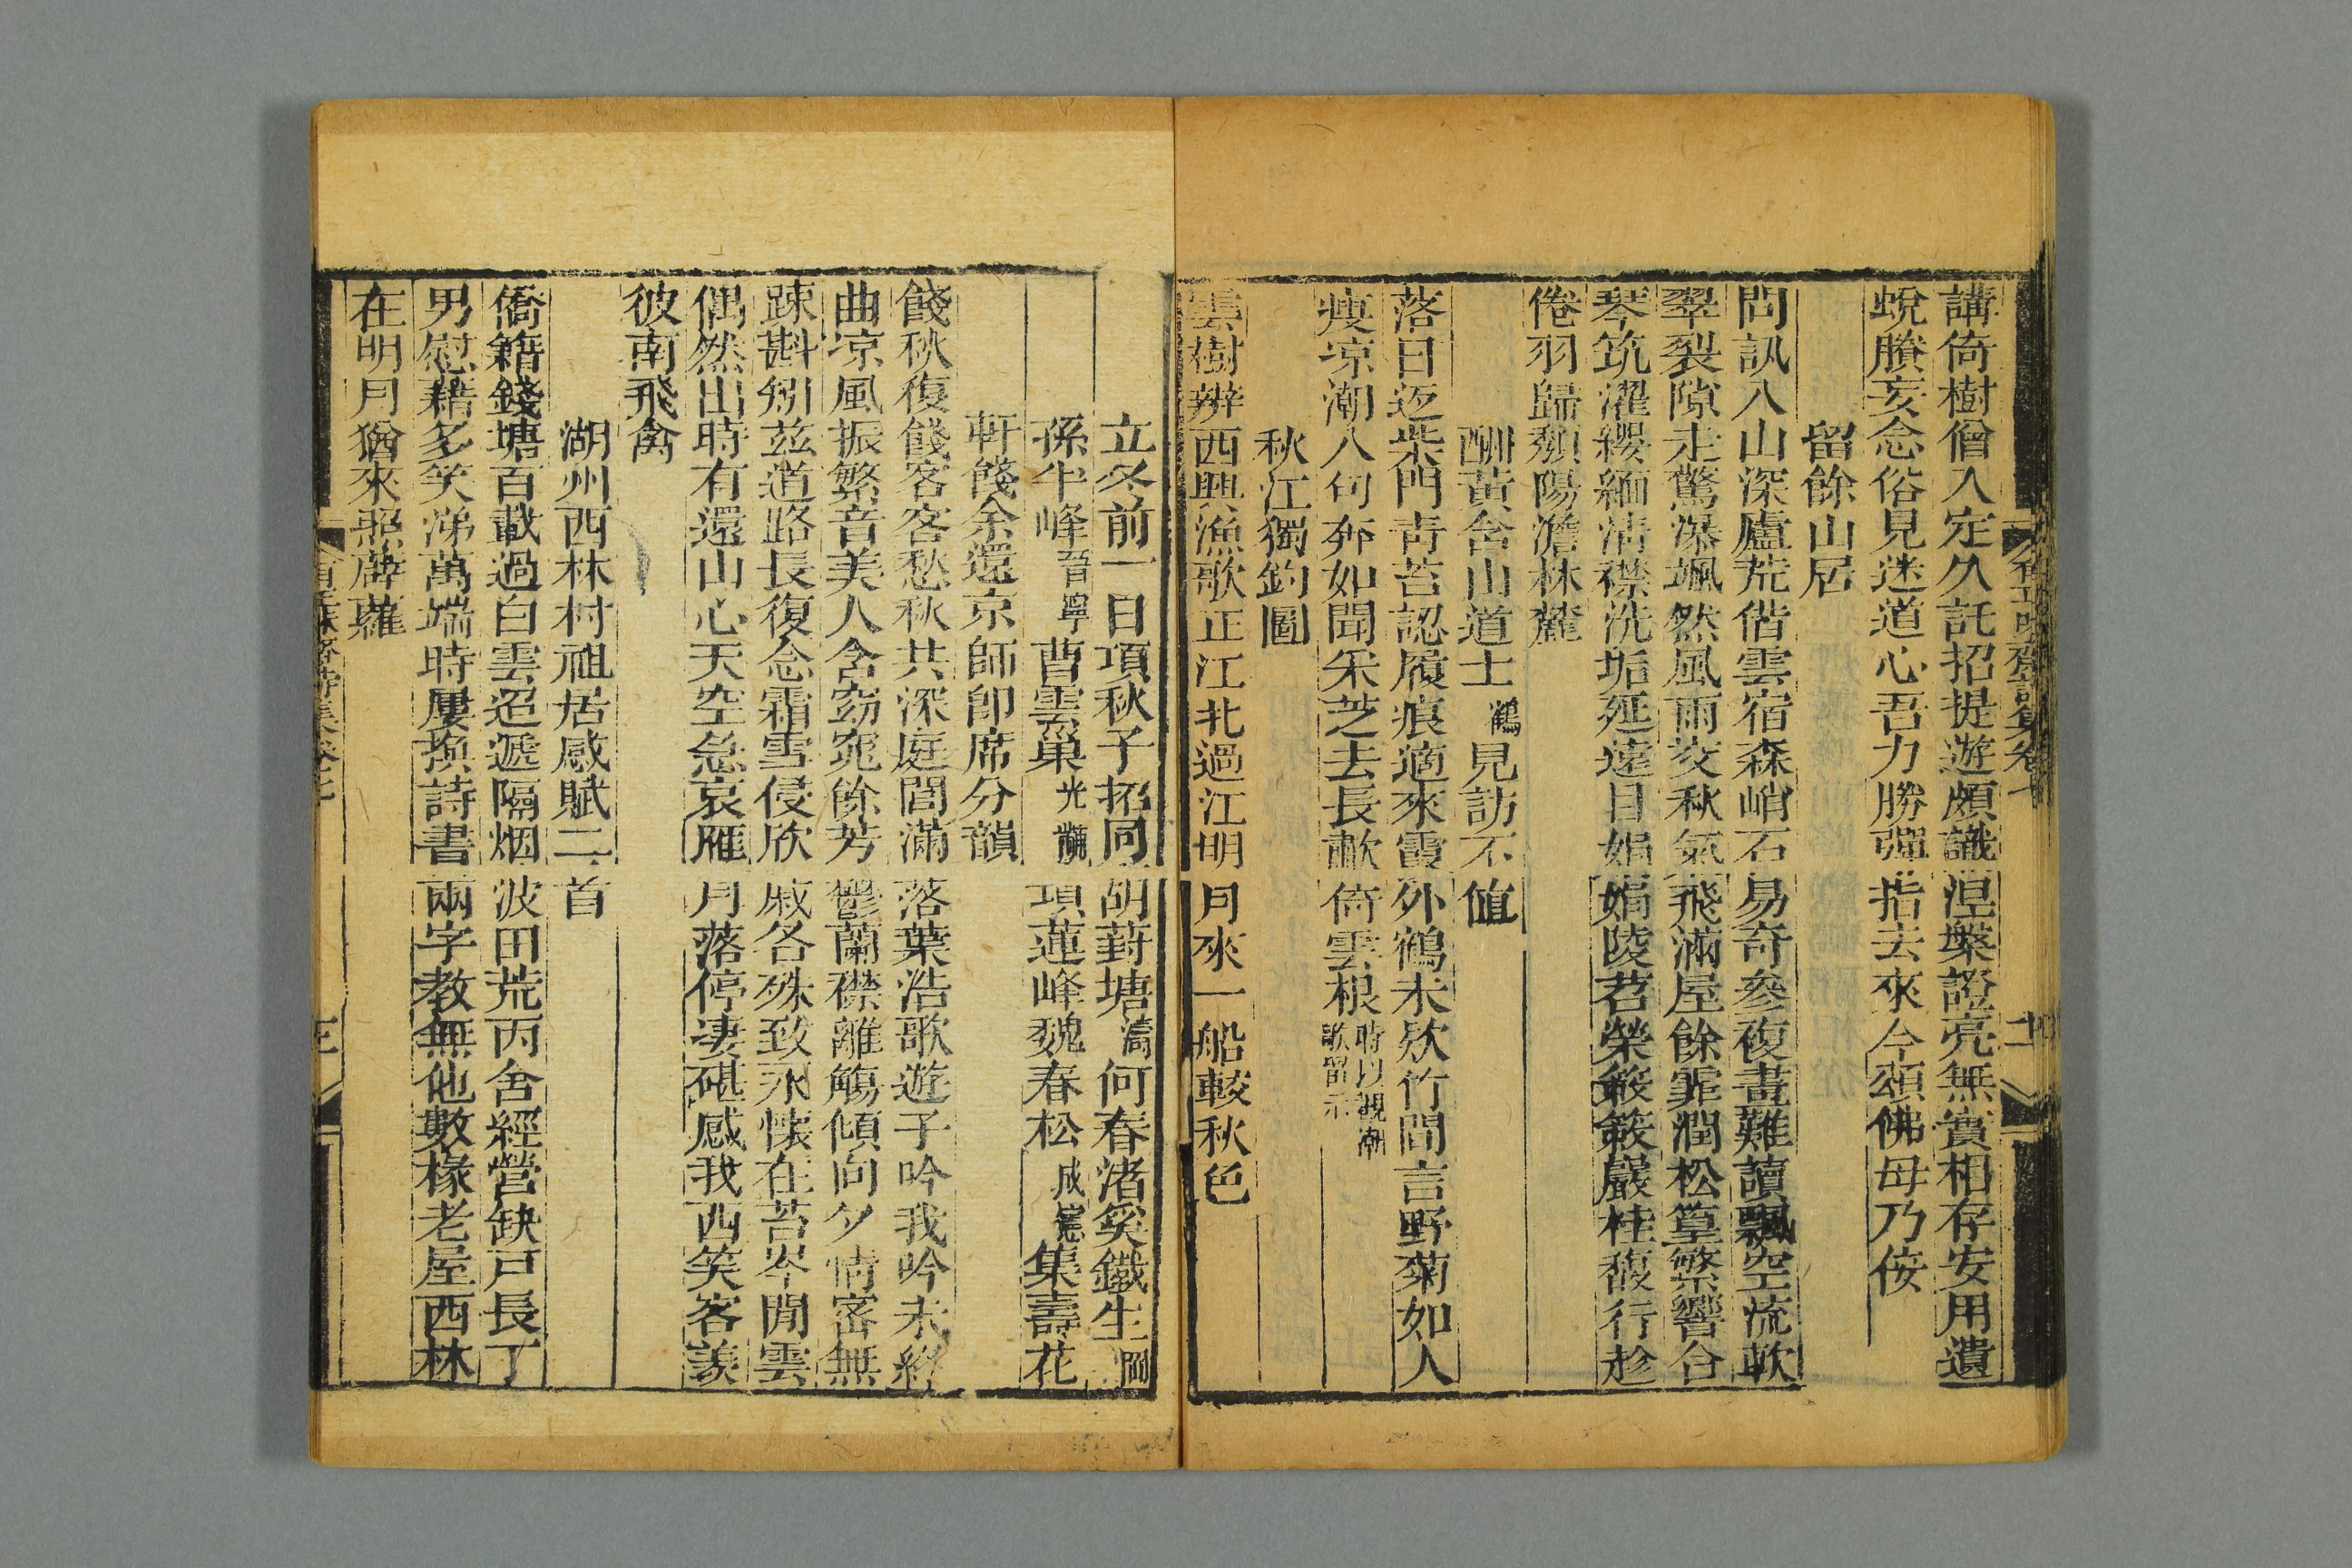 講倚樹僧入定久託招提遊頗識涅槃證亮無實相存安用遺
蛻賸妄念俗見迷道心吾力勝彈指去來今頌佛母乃侫
留餘山居
問訊入山深廬荒偕雲宿森峭石易奇參複畫難讀飄空流軟
翠裂隙走驚瀑颯然風雨交秋氣飛滿屋餘霏潤松篁繁響合
琴筑濯纓緬清襟洗垢延遠目娟娟陵苕榮簌簌巖桂馥行趁
倦羽歸頽陽澹林麓
酬黃含山道士鶴見訪不値
落日迓柴門靑苔認履痕適來霞外鶴未欵竹間言野菊如人
瘦凉潮入句奔如聞采芝去長歗倚雲根時以觀潮歌畱示
秋江獨釣圖
雲樹辨西興漁歌正江北過江明月來一船載秋色
立冬前一日項秋子招同胡葑塘濤何春渚奚鐵生岡
孫半峰晉寧曹雲巢光黼項蓮峰魏春松成憲集壽花
軒餞余還京師卽席分韻
餞秋復餞客客愁秋共深庭閒滿落葉浩歌遊子吟我吟未終
曲凉風振繁音美人含窈窕餘芳鬱蘭襟離觴傾向夕情密無
踈斟矧茲道路長復念霜雪侵欣戚各殊致永懷在苔岑閒雲
偶然出時有還山心天空急哀雁月落停淒碪感我西笑客羨
彼南飛禽
湖州西林村祖居感賦二首
僑籍錢塘百載過白雲迢遞隔烟波田荒丙舍經營缺戸長丁
男慰藉多笑涕萬端時屢換詩書兩字教無他數椽老屋西林
在明月猶來照薜蘿